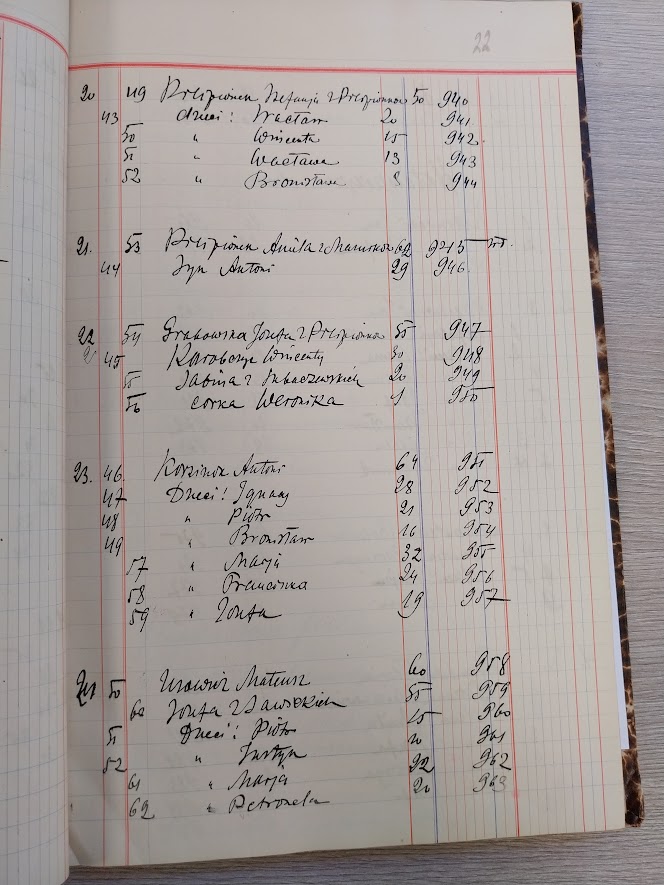 22
20 49 Przepiórek Stefanja z Przepiórków 50 940
43 dzieci: Wacław 20 941
50 " Wincenta 15 942
51 " Wacława 13 943
52 " Bronisława 8 944
21. 53 Przepiórek Aniela z 62 945
44 Syn Antoni 29 946
22 54 Grabowska Józefa z Przepiórków 55 947
45 Wincenty 30 948
55 Sabina z 20 949
56 córka Weronika 1 950
23. 46 Korzinok Antoni 64 951
47 Dzieci: Ignacy 28 952
48 " Piotr 21 953
49 " Bronisław 16 954
57 " Marja 32 955
58 " Franciszka 24 956
59 " Józefa 19 957
24 50 Mateusz 60 958
60 Józefa z Sawickich 55 959
51 Dzieci: Piotr 15 960
52 " Justyn 10 961
61 " Marja 22 962
62 " Petronela 20 963